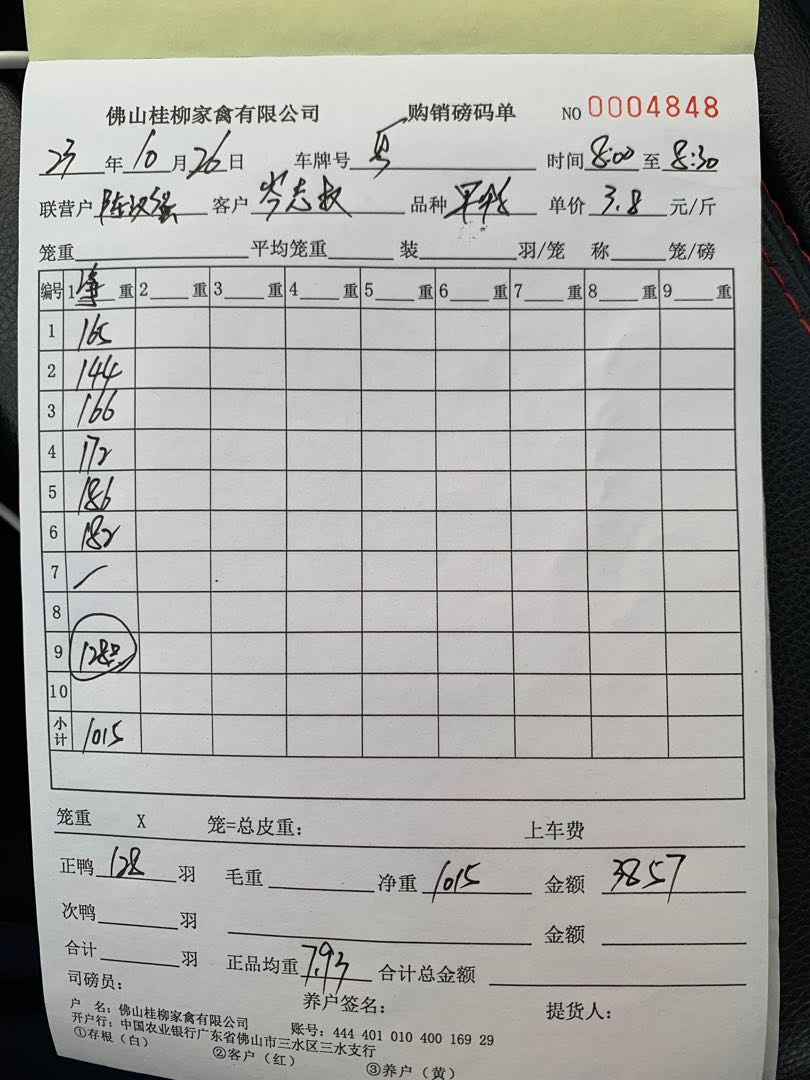 佛山桂柳家禽有限公司 购销磅码单 NO 0004848
23 年 10 月 26 日 车牌号 时间 8:00 至 8:30
联营户 陈汉强 客户 岑志权 品种 单价 3.8 元/斤
笼重 平均笼重 装 羽/笼 称 笼/磅
编号 1 重 2 重 3 重 4 重 5 重 6 重 7 重 8 重 9 重
1 165
2 144
3 166
4 172
5 186
6 182
7 /
8
9 128只
10
小计 1015
笼重 X 笼=总皮重: 上车费
正鸭 128 羽 毛重 净重 1015 金额 3857
次鸭 羽 金额
合计 羽 正品均重 7.93 合计总金额
司磅员: 养户签名: 提货人:
户 名: 佛山桂柳家禽有限公司 账号: 444 401 010 400 169 29
开户行: 中国农业银行广东省佛山市三水区三水支行
①存根(白) ②客户(红) ③养户(黄)